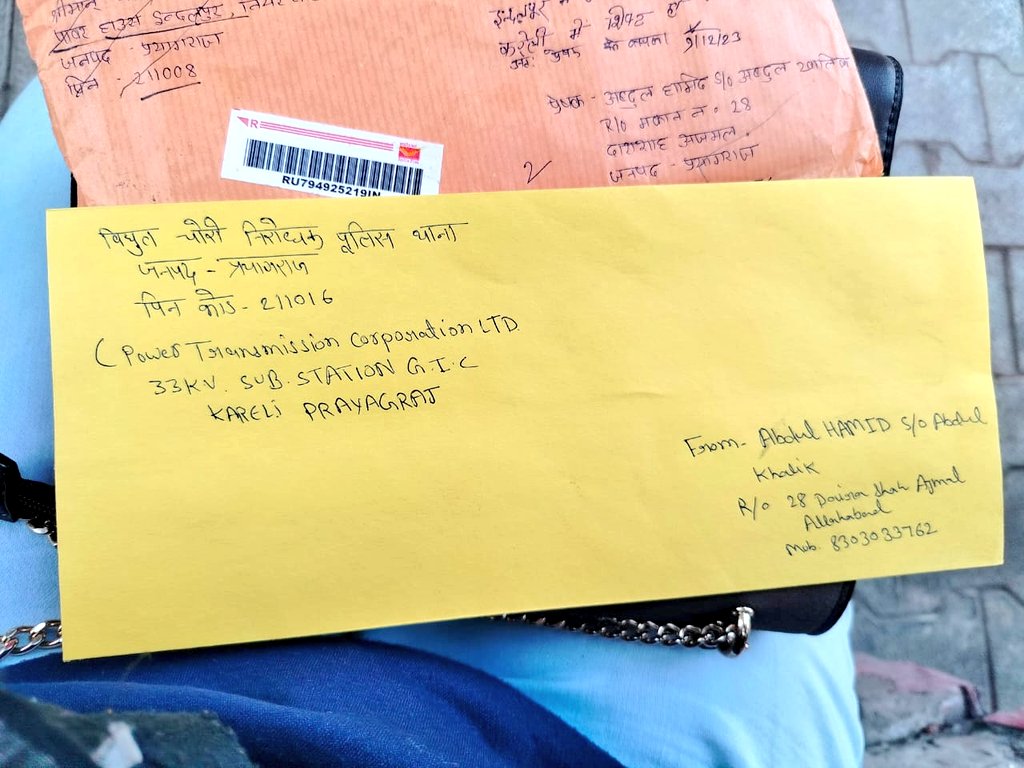 श्रीमान
पावर हाउस इन्दलपुर,
जनपद - प्रयागराज
पिन - 211008
इन्दलपुर
करेली में शिफ्ट हो
9/12/23
प्रेषक - अब्दुल हामिद S/O अब्दुल खालिक
R/O मकान न. 28
दायराशाह अजमल.
जनपद - प्रयागराज
2
R
RU794925219IN
विद्युत चोरी निरोधक पुलिस थाना
जनपद - प्रयागराज
पिन कोड - 211016
(Power Transmission Corporation LTD
33KV. SUB. STATION G.I.C
KARELI PRAYAGRAJ
From - Abdul HAMID S/o Abdul
Khalik
R/o 28 Daira Shah Ajmal
Allahabad
Mob. 8303033762